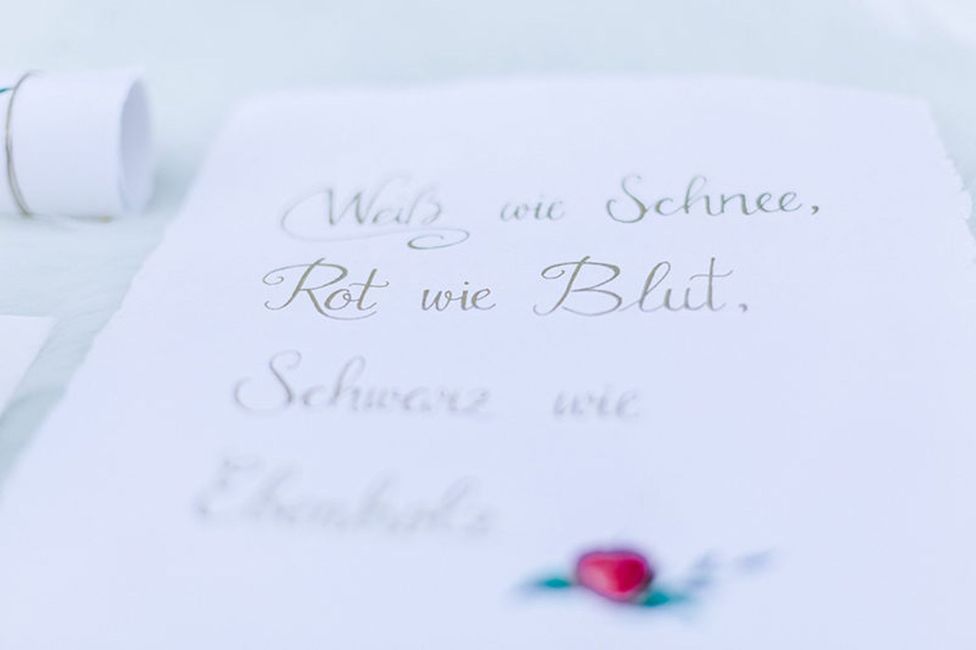 Weiß wie Schnee,
Rot wie Blut,
Schwarz wie
Ebenholz